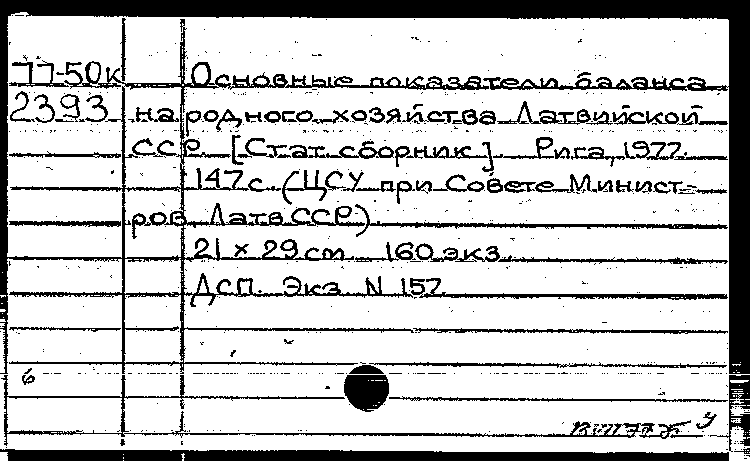 77-50к Основные показатели баланса
2393 народного хозяйства Латвийской
ССР. [Стат. сборник]. Рига, 1977.
147 с. (ЦСУ при Совете Минист-
ров Латв ССР).
21 × 29 см 160 экз.
ДСП. Экз N 157
6